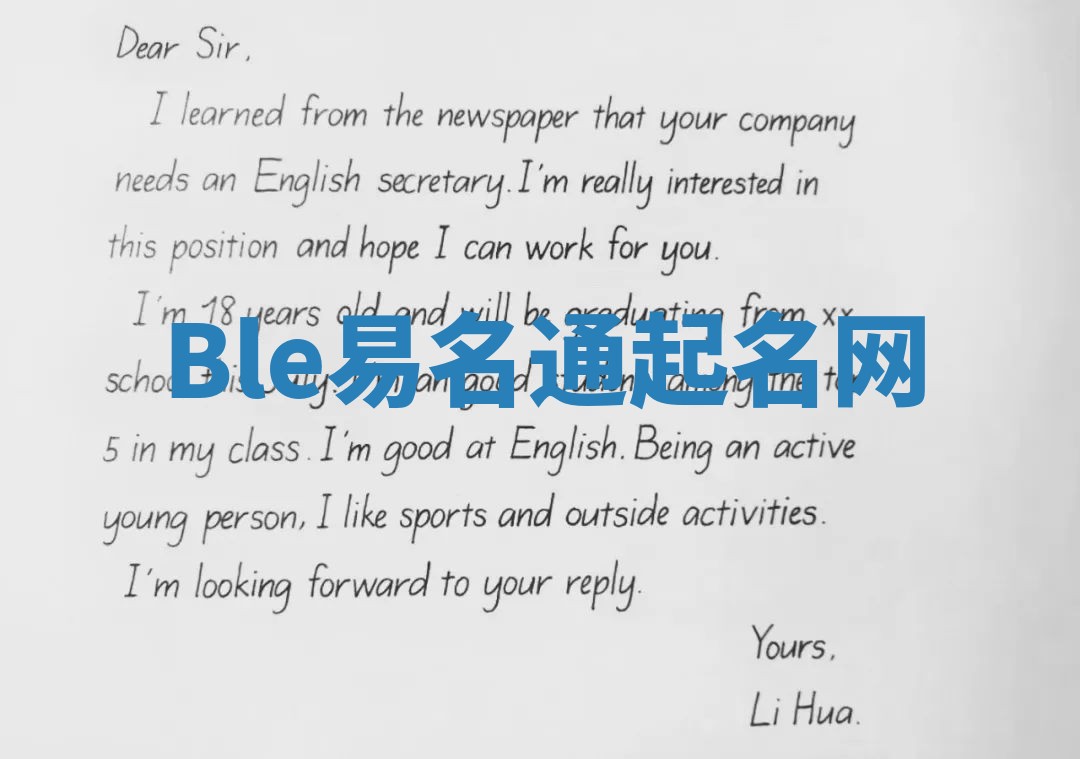 Dear Sir,
I learned from the newspaper that your company
needs an English secretary. I'm really interested in
this position and hope I can work for you.
I'm 18 years old and will be graduating from xx
school this July. I'm an good student among the top
5 in my class. I'm good at English. Being an active
young person, I like sports and outside activities.
I'm looking forward to your reply.
Yours,
Li Hua.
Ble易名通起名网